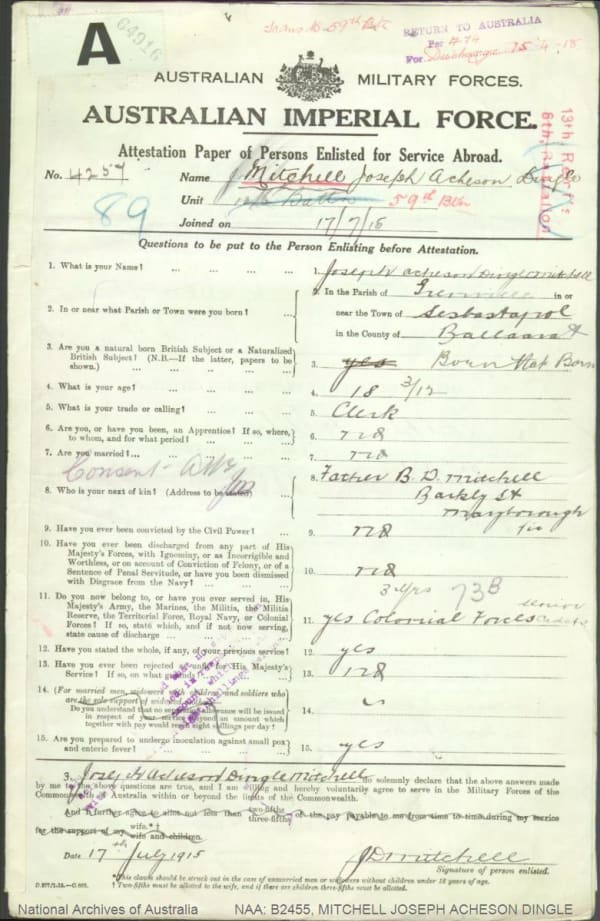 A
64916
Trans to 59th Btn
RETURN TO AUSTRALIA
Per A 74
For Discharge 15-4-18
AUSTRALIAN MILITARY FORCES.
AUSTRALIAN IMPERIAL FORCE.
Attestation Paper of Persons Enlisted for Service Abroad.
13th Reinf'ts
8th Battalion
No. 4257 Name Mitchell Joseph Acheson Dingle
Unit 59th Btn
89
Joined on 17/7/15
Questions to be put to the Person Enlisting before Attestation.
1. What is your Name? ... ... ... ... 1. Joseph Acheson Dingle Mitchell
2. In or near what Parish or Town were you born? ... 2. In the Parish of Grenville in or
near the Town of Sebastapol
in the County of Ballaarat
3. Are you a natural born British Subject or a Naturalized
British Subject? (N.B.—If the latter, papers to be
shown.) ... ... ... ... ... 3. yes Born
4. What is your age? ... ... ... ... 4. 18 3/12
5. What is your trade or calling? ... ... ... 5. Clerk
6. Are you, or have you been, an Apprentice? If so, where,
to whom, and for what period? ... ... ... 6. no
7. Are you married? ... ... ... ... 7. no
Consent
8. Who is your next of kin? (Address to be stated) ... 8. Father B. D. Mitchell
Barkly St
Maryborough
Vic
9. Have you ever been convicted by the Civil Power? ... 9. no
10. Have you ever been discharged from any part of His
Majesty's Forces, with Ignominy, or as Incorrigible and
Worthless, or on account of Conviction of Felony, or of a
Sentence of Penal Servitude, or have you been dismissed
with Disgrace from the Navy? ... ... ... 10. no
3 yrs 73B
11. Do you now belong to, or have you ever served in, His
Majesty's Army, the Marines, the Militia, the Militia
Reserve, the Territorial Force, Royal Navy, or Colonial
Forces? If so, state which, and if not now serving,
state cause of discharge ... ... ... ... 11. yes Colonial Forces Senior Cadets
12. Have you stated the whole, if any, of your previous service? 12. yes
13. Have you ever been rejected as unfit for His Majesty's
Service? If so, on what grounds? ... ... 13. no
14. (For married men, widowers with children, and soldiers who
are the sole support of widowed mother)—
Do you understand that no separation allowance will be issued
in respect of your service beyond an amount which
together with pay would reach eight shillings per day? 14.
15. Are you prepared to undergo inoculation against small pox
and enteric fever? ... ... ... ... 15. yes
3. Joseph Acheson Dingle Mitchell do solemnly declare that the above answers made
by me to the above questions are true, and I am willing and hereby voluntarily agree to serve in the Military Forces of the
Commonwealth of Australia within or beyond the limits of the Commonwealth.
And I further agree to allot not less than two-fifths three-fifths of the pay payable to me from time to time during my service
for the support of my wife* † wife and children.
Date 17th July 1915 J D Mitchell
Signature of person enlisted.
*This clause should be struck out in the case of unmarried men or widowers without children under 18 years of age.
† Two-fifths must be allotted to the wife, and if there are children three-fifths must be allotted.
National Archives of Australia NAA: B2455, MITCHELL JOSEPH ACHESON DINGLE